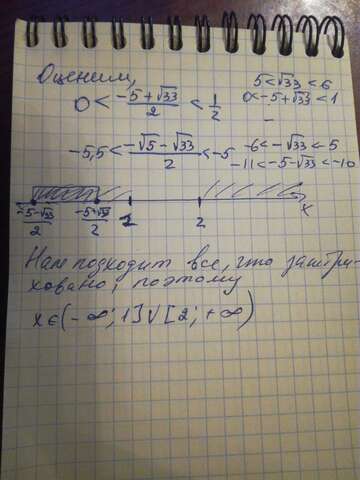 Оценим,
5 < √33 < 6
0 < (-5 + √33)/2 < 1/2
0 < -5 + √33 < 1
-5,5 < (-√5 - √33)/2 < -5
-6 < -√33 < 5
-11 < -5 - √33 < -10
(-5-√33)/2 (-5+√33)/2 1 2 x
Нам подходит все, что заштри-
ховано, поэтому
x ∈ (-∞; 1] ∨ [2; +∞)